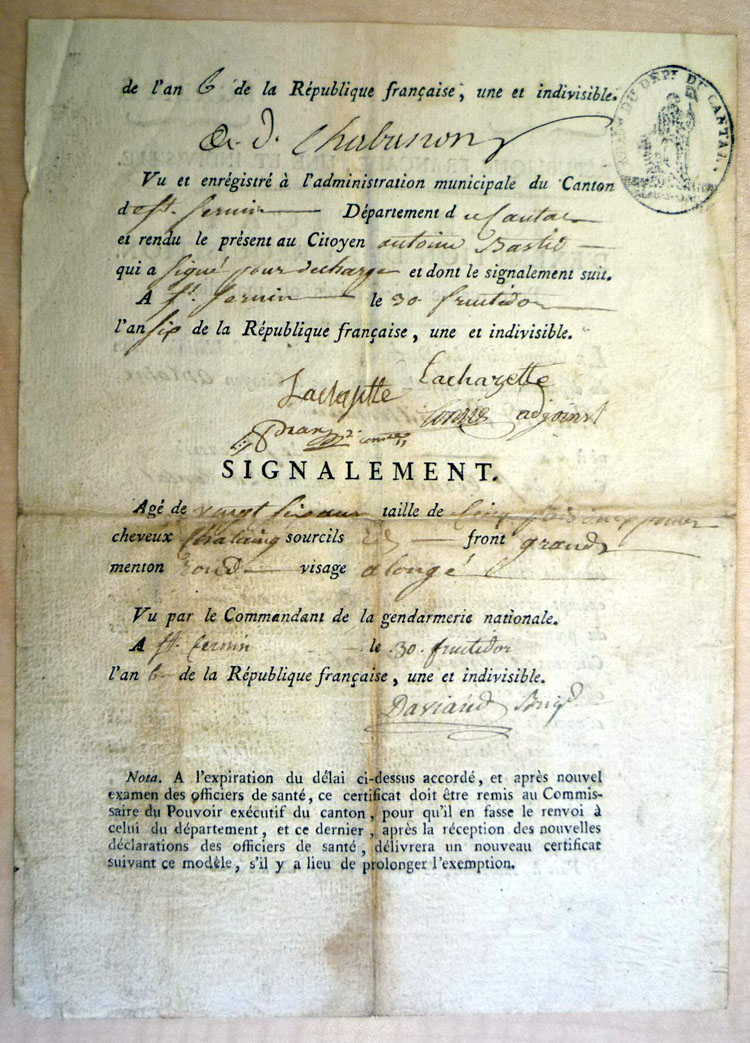 de l'an 6 de la République française, une et indivisible.
DU DÉPt. DU CANTAL.
Chabanon
Vu et enrégistré à l'administration municipale du Canton
d e St. Cernin Département d u Cantal
et rendu le présent au Citoyen antoine Bastid
qui a signé pour décharge et dont le signalement suit.
A St. Cernin le 30 fruitidor
l'an six de la République française, une et indivisible.
Lachazette
adjoint
SIGNALEMENT.
Agé de vaingt six ans taille de Cinq
cheveux Chataing sourcils id front grand
menton rond visage alongé
Vu par le Commandant de la gendarmerie nationale.
A St. Cernin le 30 fruitidor
l'an 6 de la République française, une et indivisible.
Daviaud Brigd
Nota. A l'expiration du délai ci-dessus accordé, et après nouvel
examen des officiers de santé, ce certificat doit être remis au Commis-
saire du Pouvoir exécutif du canton, pour qu'il en fasse le renvoi à
celui du département, et ce dernier, après la réception des nouvelles
déclarations des officiers de santé, délivrera un nouveau certificat
suivant ce modèle, s'il y a lieu de prolonger l'exemption.